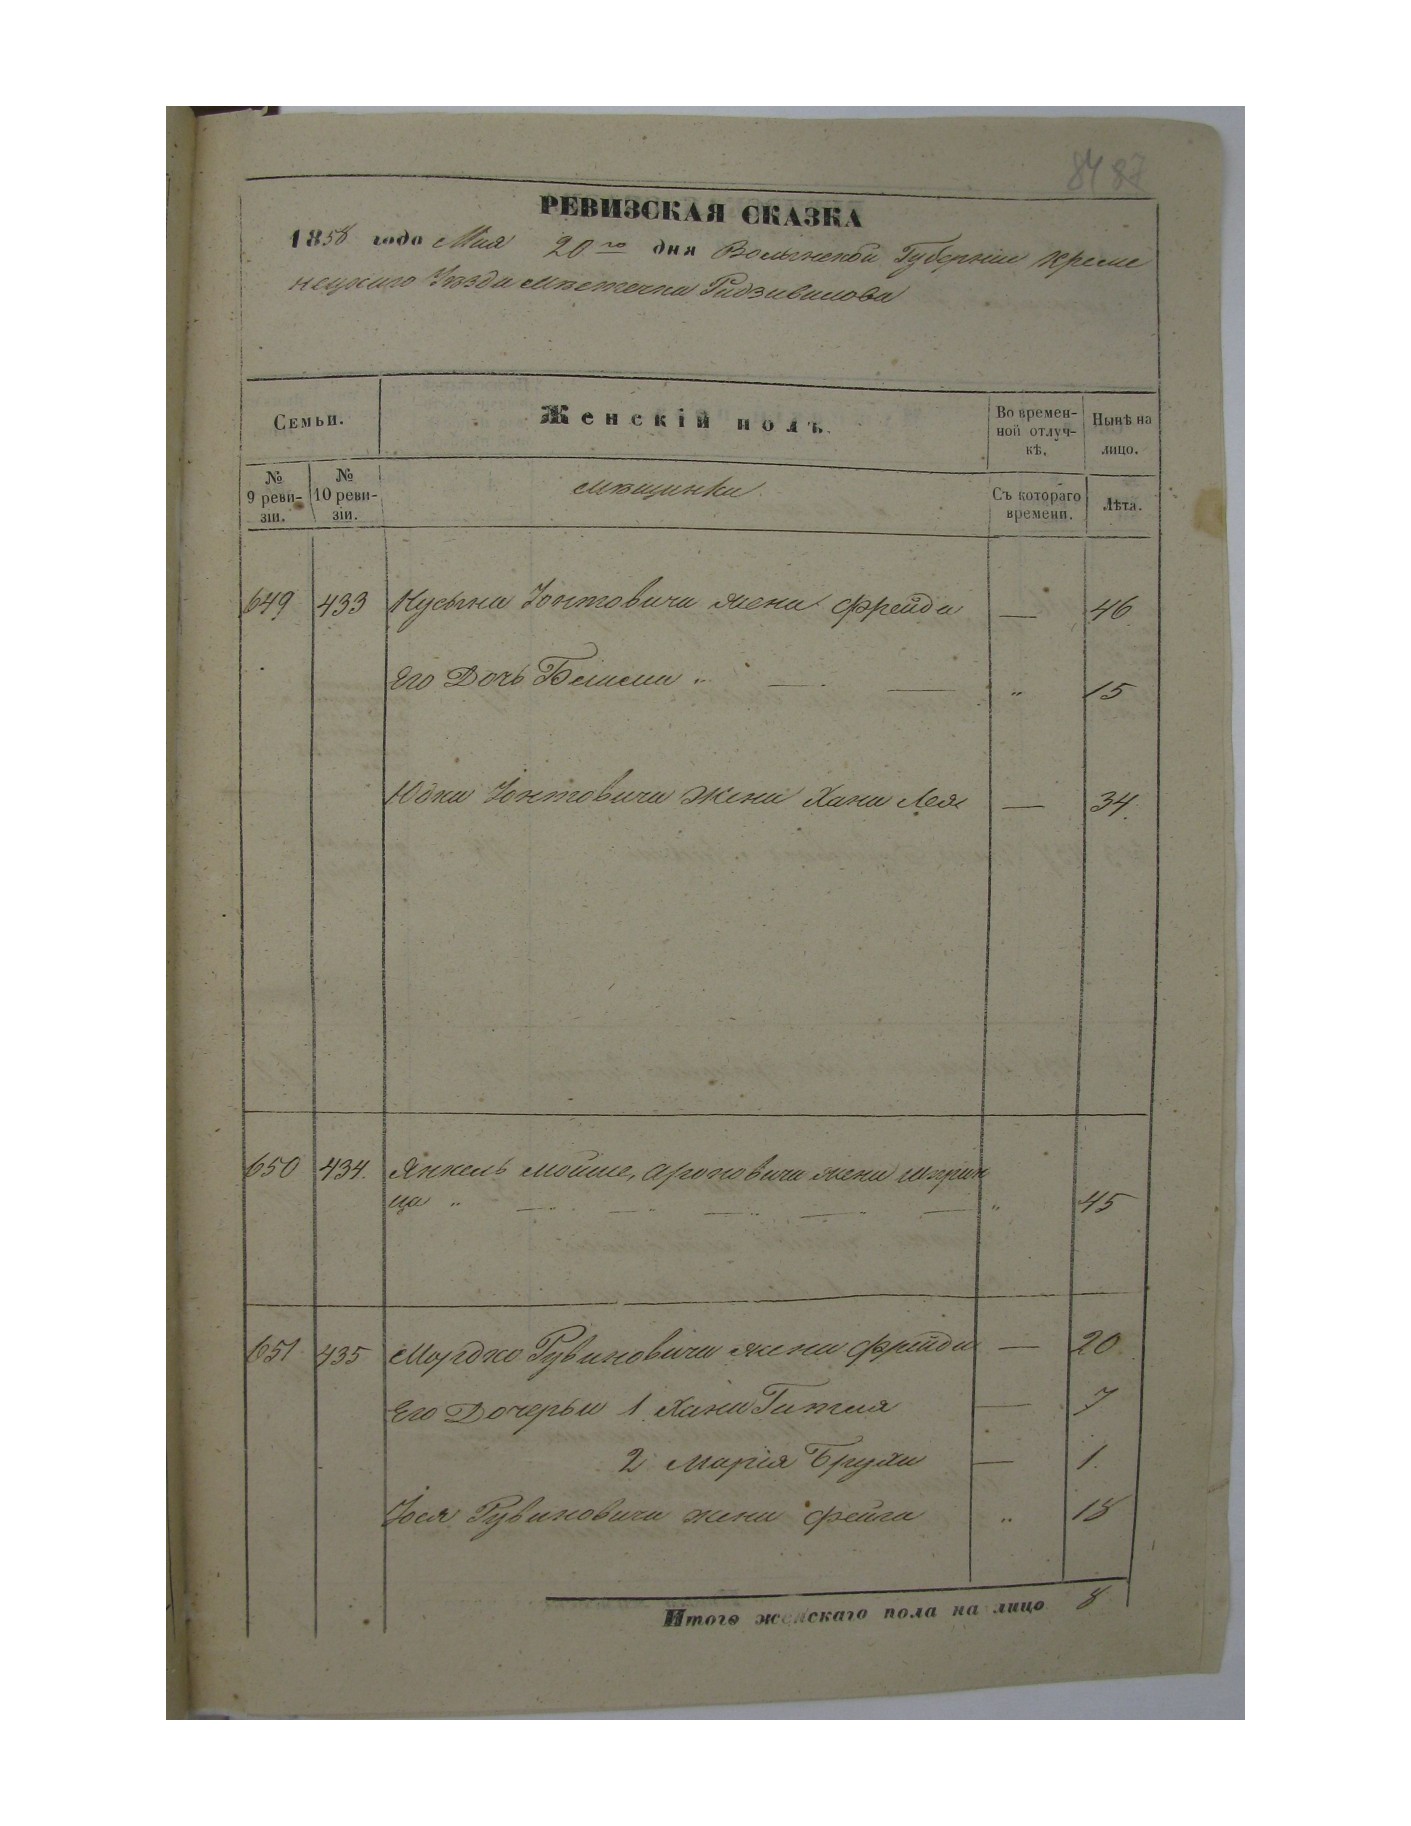 84 87
РЕВИЗСКАЯ СКАЗКА
1858 года Мая 20го дня Волынской Губернии Креме
нецкаго Уезда местечка Радзивилова
Семьи.
Женскій полъ.
Во времен-
ной отлуч-
кѣ.
Нынѣ на
лицо.
№
9 реви-
зіи.
№
10 реви-
зіи.
мѣщанка
Съ котораго
времени.
Лѣта.
649 433 Нусына Іонтовича жена Фрейда — 46
Его Дочь Бейла " — — " 15
Юдки Іонтовича жена Хана Лея — 34.
650 434. Янкель Мойше, Ароновича жена Шприн
ца " — — — — — " 45
651 435 Мордко Рувиновича жена Фрейда — 20
Его Дочерьи 1. Хана Гитля — 7
2. Марія Бруха — 1.
Іося Рувиновича жена Фейга " 18
Итого женскаго пола на лицо 8